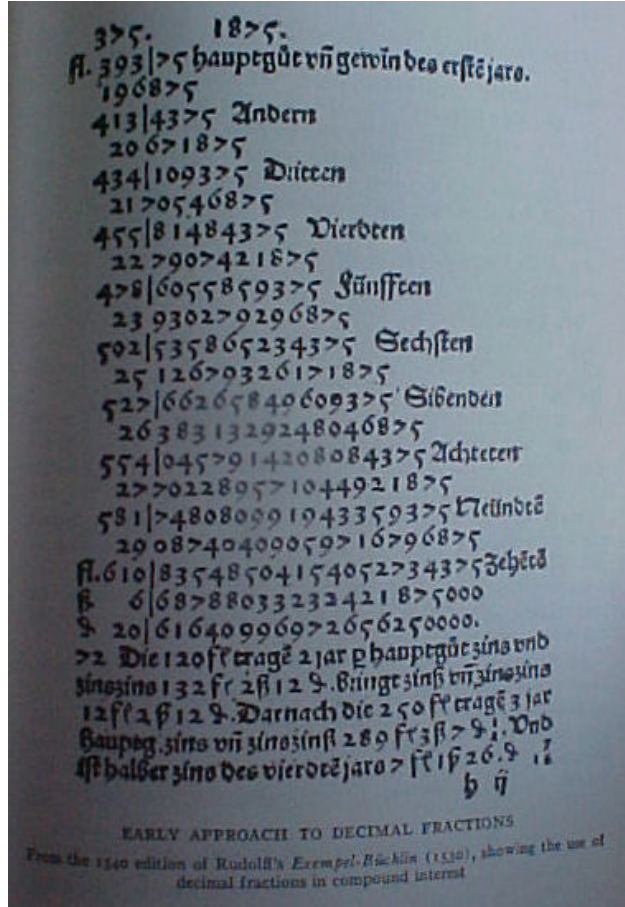 375. 1875.
fl. 393|75 hauptgůt vñ gewiñ des erstẽ jars.
196875
413|4375 Andern
20 671875
434|109375 Dritten
21 70546875
455|81484375 Vierdten
22 7907421875
478|6055859375 Fünfften
23 930279296875
502|535865234375 Sechsten
25 12679326171875
527|66265849609375 Sibenden
26 3831329248046875
554|0457914208084375 Achteten
27 702289571044921875
581|748080991943359375 Neündtẽ
29 08740409059716796875
fl. 610|83548504154052734375 Zehẽtẽ
ß 6|68788033232421875000
₰ 20|61640996972656250000.
72 Die 120 fl tragẽ 2 jar p hauptgůt zins vnd
zinszins 132 fl 2 ß 12 ₰. Bringt zinß vñ zinszins
12 fl 2 ß 12 ₰. Darnach die 250 fl tragẽ 3 jar
Hauptg. zins vñ zinszinß 289 fl 3 ß 7 ₰ ½. Vnd
ist halber zins des vierdtẽ jars 7 fl 1 ß 26. ₰ 7/16
h ij
EARLY APPROACH TO DECIMAL FRACTIONS
From the 1540 edition of Rudolff's Exempel-Büchlin (1530), showing the use of
decimal fractions in compound interest